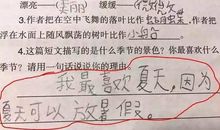 漂亮——(美丽) 缓缓——(慢慢)
3.作者把在空中飞舞的落叶比作，作者把
浮在水面上随风飘荡的树叶比作小船
4.这篇短文描写的是什么季节的景色？你最喜欢什么
季节？请用一句话说说你的理由。
我最喜欢夏天,因为
夏天可以放暑假。